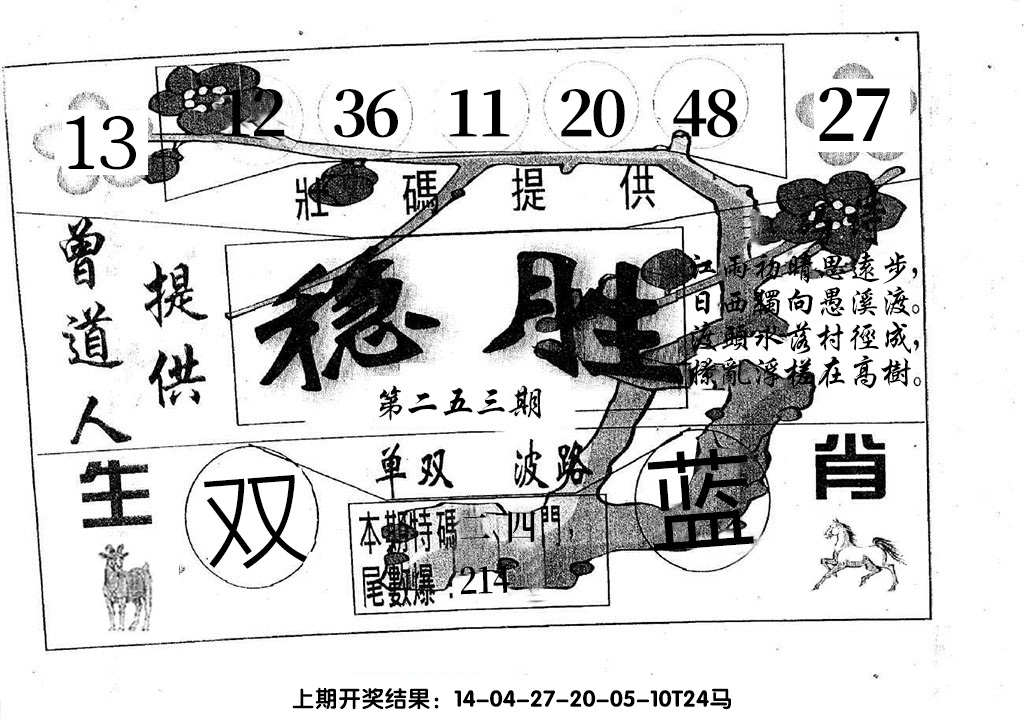 13 12 36 11 20 48 27
壯碼提供
特
曾道人
提供
稳胜
第二五三期
江雨初晴思遠步，
日西獨向愚溪渡。
渡頭水落村徑成，
撩亂浮槎在高樹。
单双 波路
生肖
双
蓝
本期特碼二、四門，
尾數爆：214
上期开奖结果：14-04-27-20-05-10T24马